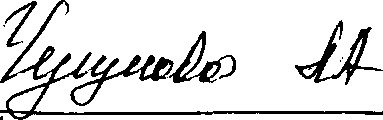 Чугунова АА